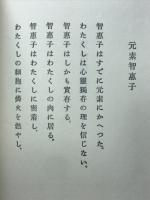 元素智恵子
智恵子はすでに元素にかへつた。
わたくしは心霊独存の理を信じない。
智恵子はしかも実存する。
智恵子はわたくしの肉に居る。
智恵子はわたくしに密着し、
わたくしの細胞に燐火を燃やし、